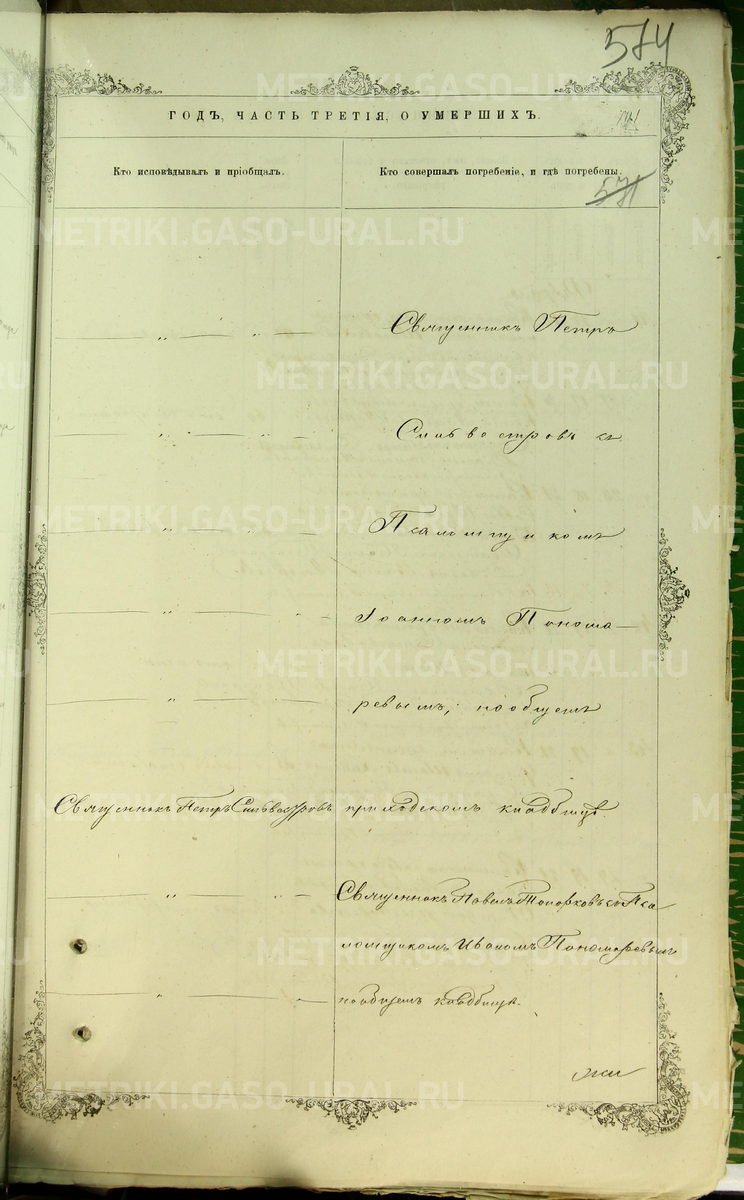 574
ГОДЪ, ЧАСТЬ ТРЕТІЯ, О УМЕРШИХЪ.
Кто исповѣдывалъ и пріобщалъ.
Кто совершалъ погребеніе, и гдѣ погребены.
571
Священникъ Петръ
Сильвестровъ съ
Псаломщикомъ
Іоанномъ Понома-
ревымъ, на общемъ
Священникъ Петръ Сильвестровъ
приходскомъ кладбищѣ.
Священникъ Павелъ Топорковъ съ Пса
ломщикомъ Иваномъ Пономаревымъ
на общемъ кладбищѣ.
METRIKI.GASO-URAL.RU